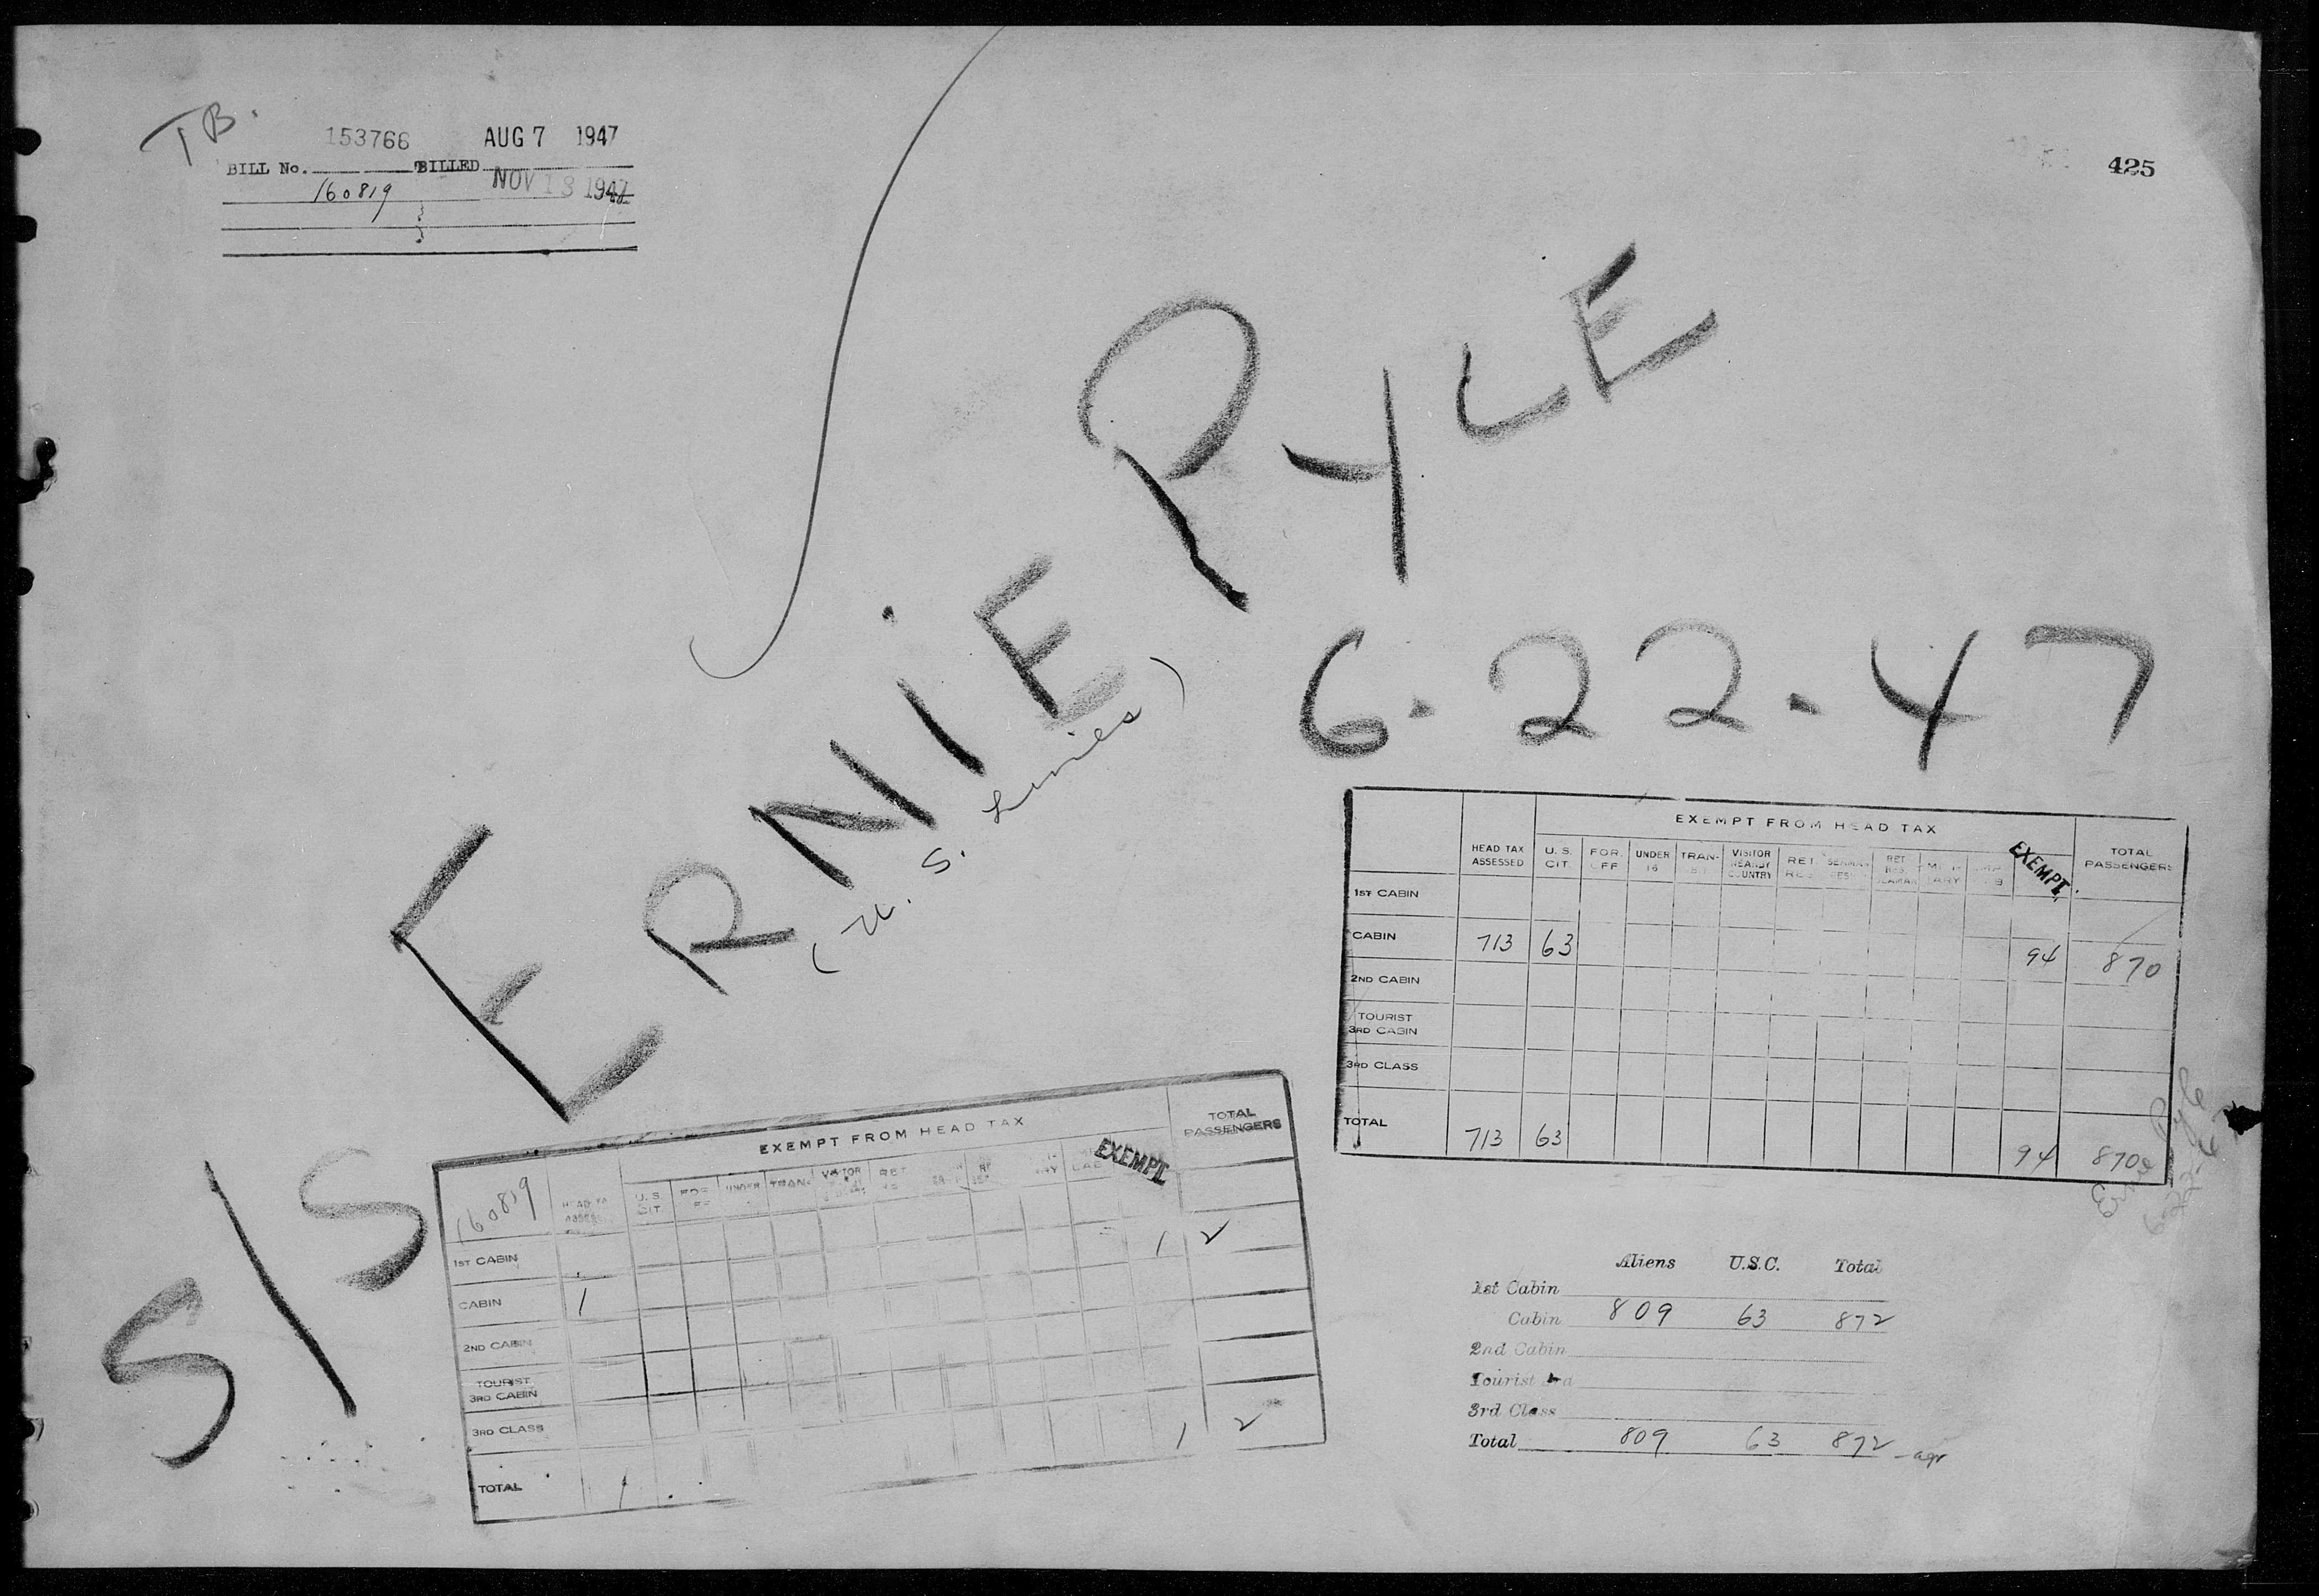 TB.
153766 AUG 7 1947
BILL No. BILLED
160819 NOV 13 1947
425
S/S ERNIE PYLE
(U. S. Lines)
6-22-47
EXEMPT FROM HEAD TAX
HEAD TAX ASSESSED U. S. CIT. FOR. OFF UNDER 16 TRAN- VISITOR NEARBY COUNTRY RET. RES. EXEMPT TOTAL PASSENGERS
1ST CABIN
CABIN 713 63 94 870
2ND CABIN
TOURIST
3RD CABIN
3RD CLASS
TOTAL 713 63 94 870
Ernie Pyle
6-22-47
EXEMPT FROM HEAD TAX
160819 U. S. CIT UNDER TRAN- VISITOR RET EXEMPT TOTAL PASSENGERS
1ST CABIN 1 2
CABIN 1
2ND CABIN
TOURIST
3RD CABIN
3RD CLASS 1 2
TOTAL 1
Aliens U.S.C. Total
1st Cabin
Cabin 809 63 872
2nd Cabin
Tourist 3rd
3rd Class
Total 809 63 872